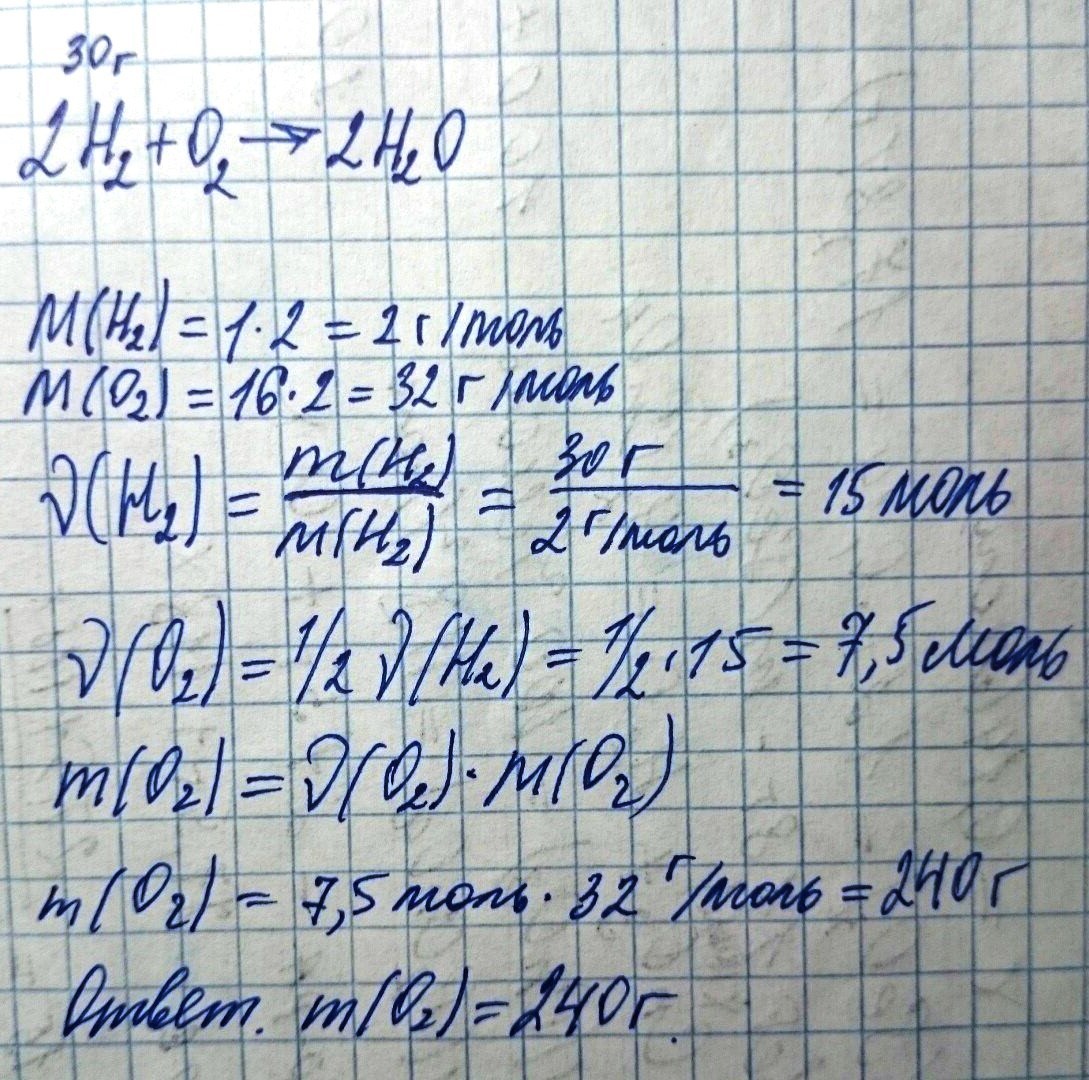 30г
2H₂+O₂→2H₂O
M(H₂)=1·2=2г/моль
M(O₂)=16·2=32г/моль
ν(H₂)=m(H₂)/M(H₂)=30г/2г/моль=15моль
ν(O₂)=1/2ν(H₂)=1/2·15=7,5моль
m(O₂)=ν(O₂)·M(O₂)
m(O₂)=7,5моль·32г/моль=240г
Ответ. m(O₂)=240г.